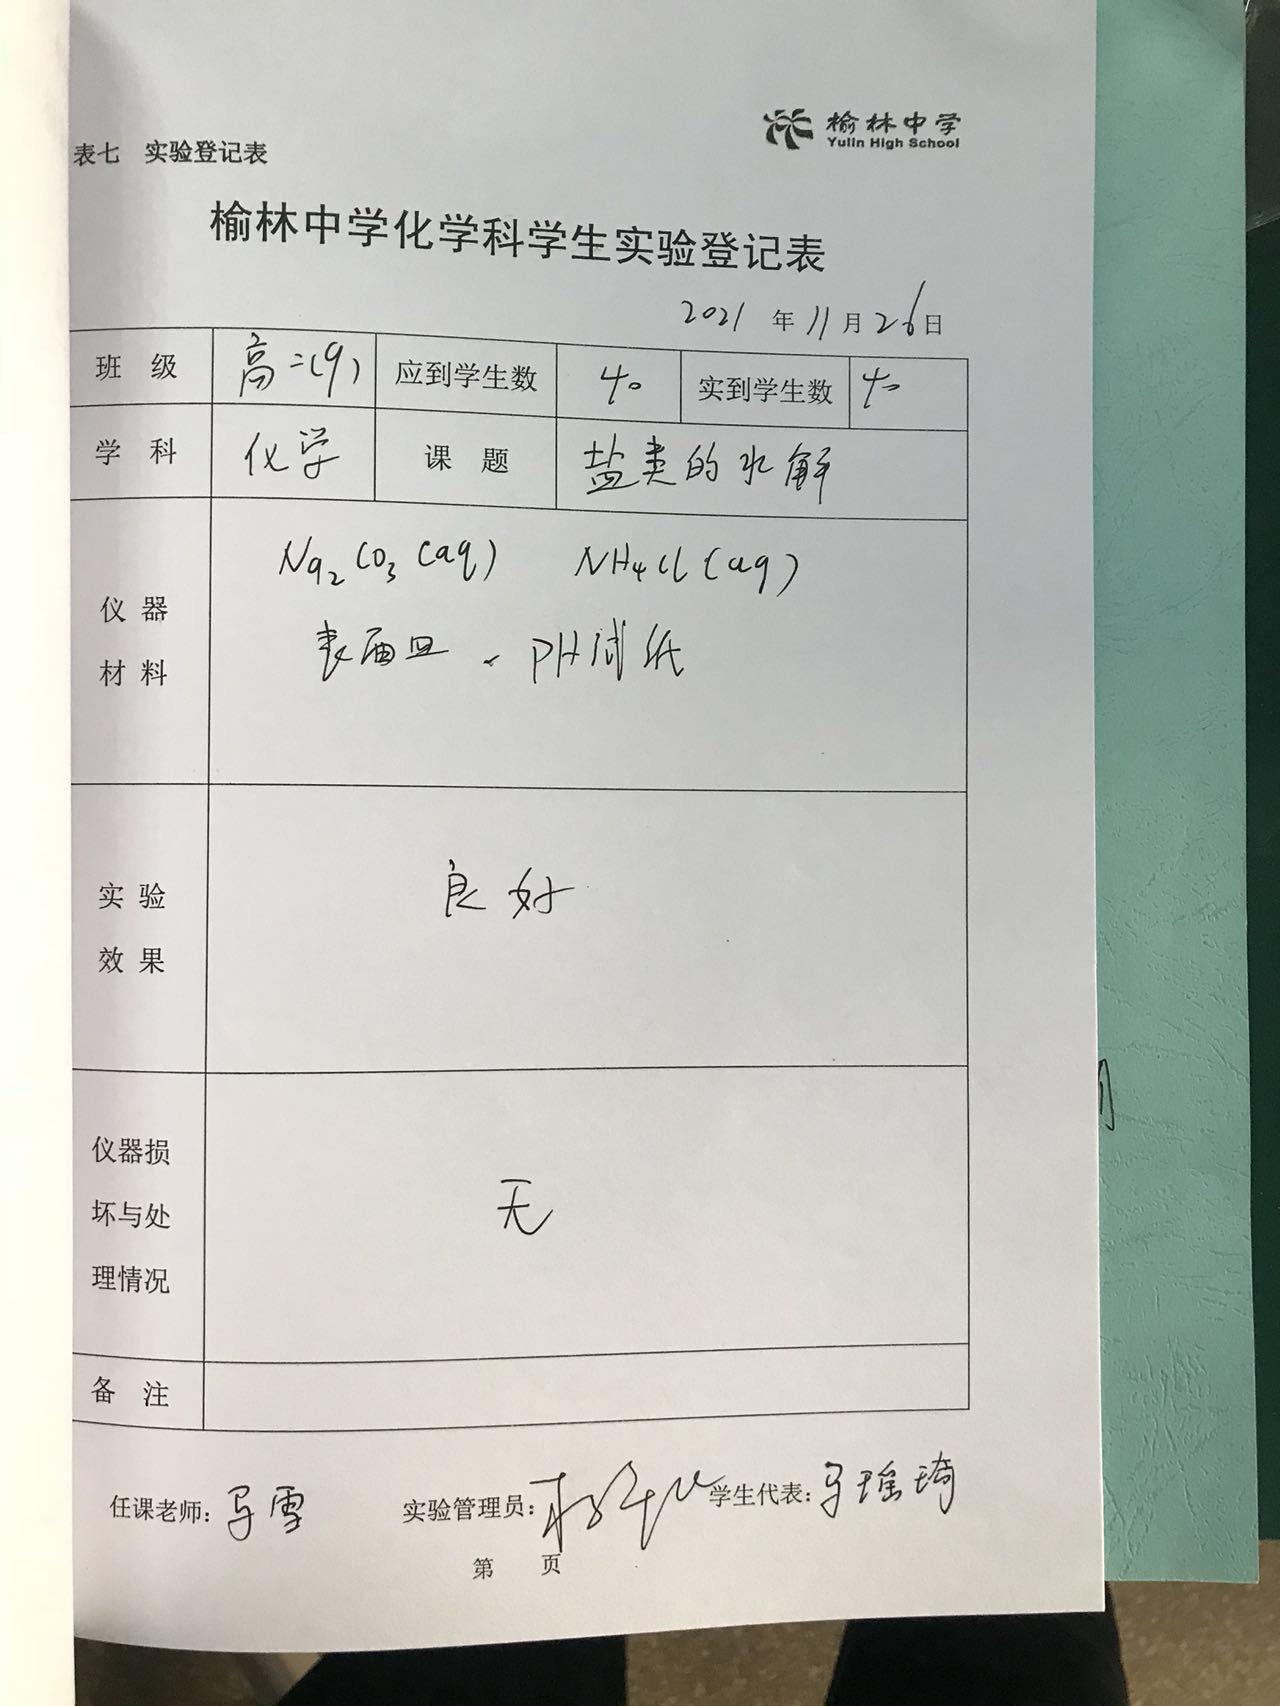 榆林中学
Yulin High School
表七 实验登记表
榆林中学化学科学生实验登记表
2021 年 11 月 26 日
班 级 高二(9) 应到学生数 40 实到学生数 40
学 科 化学 课 题 盐类的水解
仪 器
材 料
Na2CO3(aq) NH4Cl(aq)
表面皿、PH试纸
实 验
效 果
良好
仪器损
坏与处
理情况
无
备 注
任课老师: 马雪 实验管理员: 学生代表: 马瑶琦
第 页